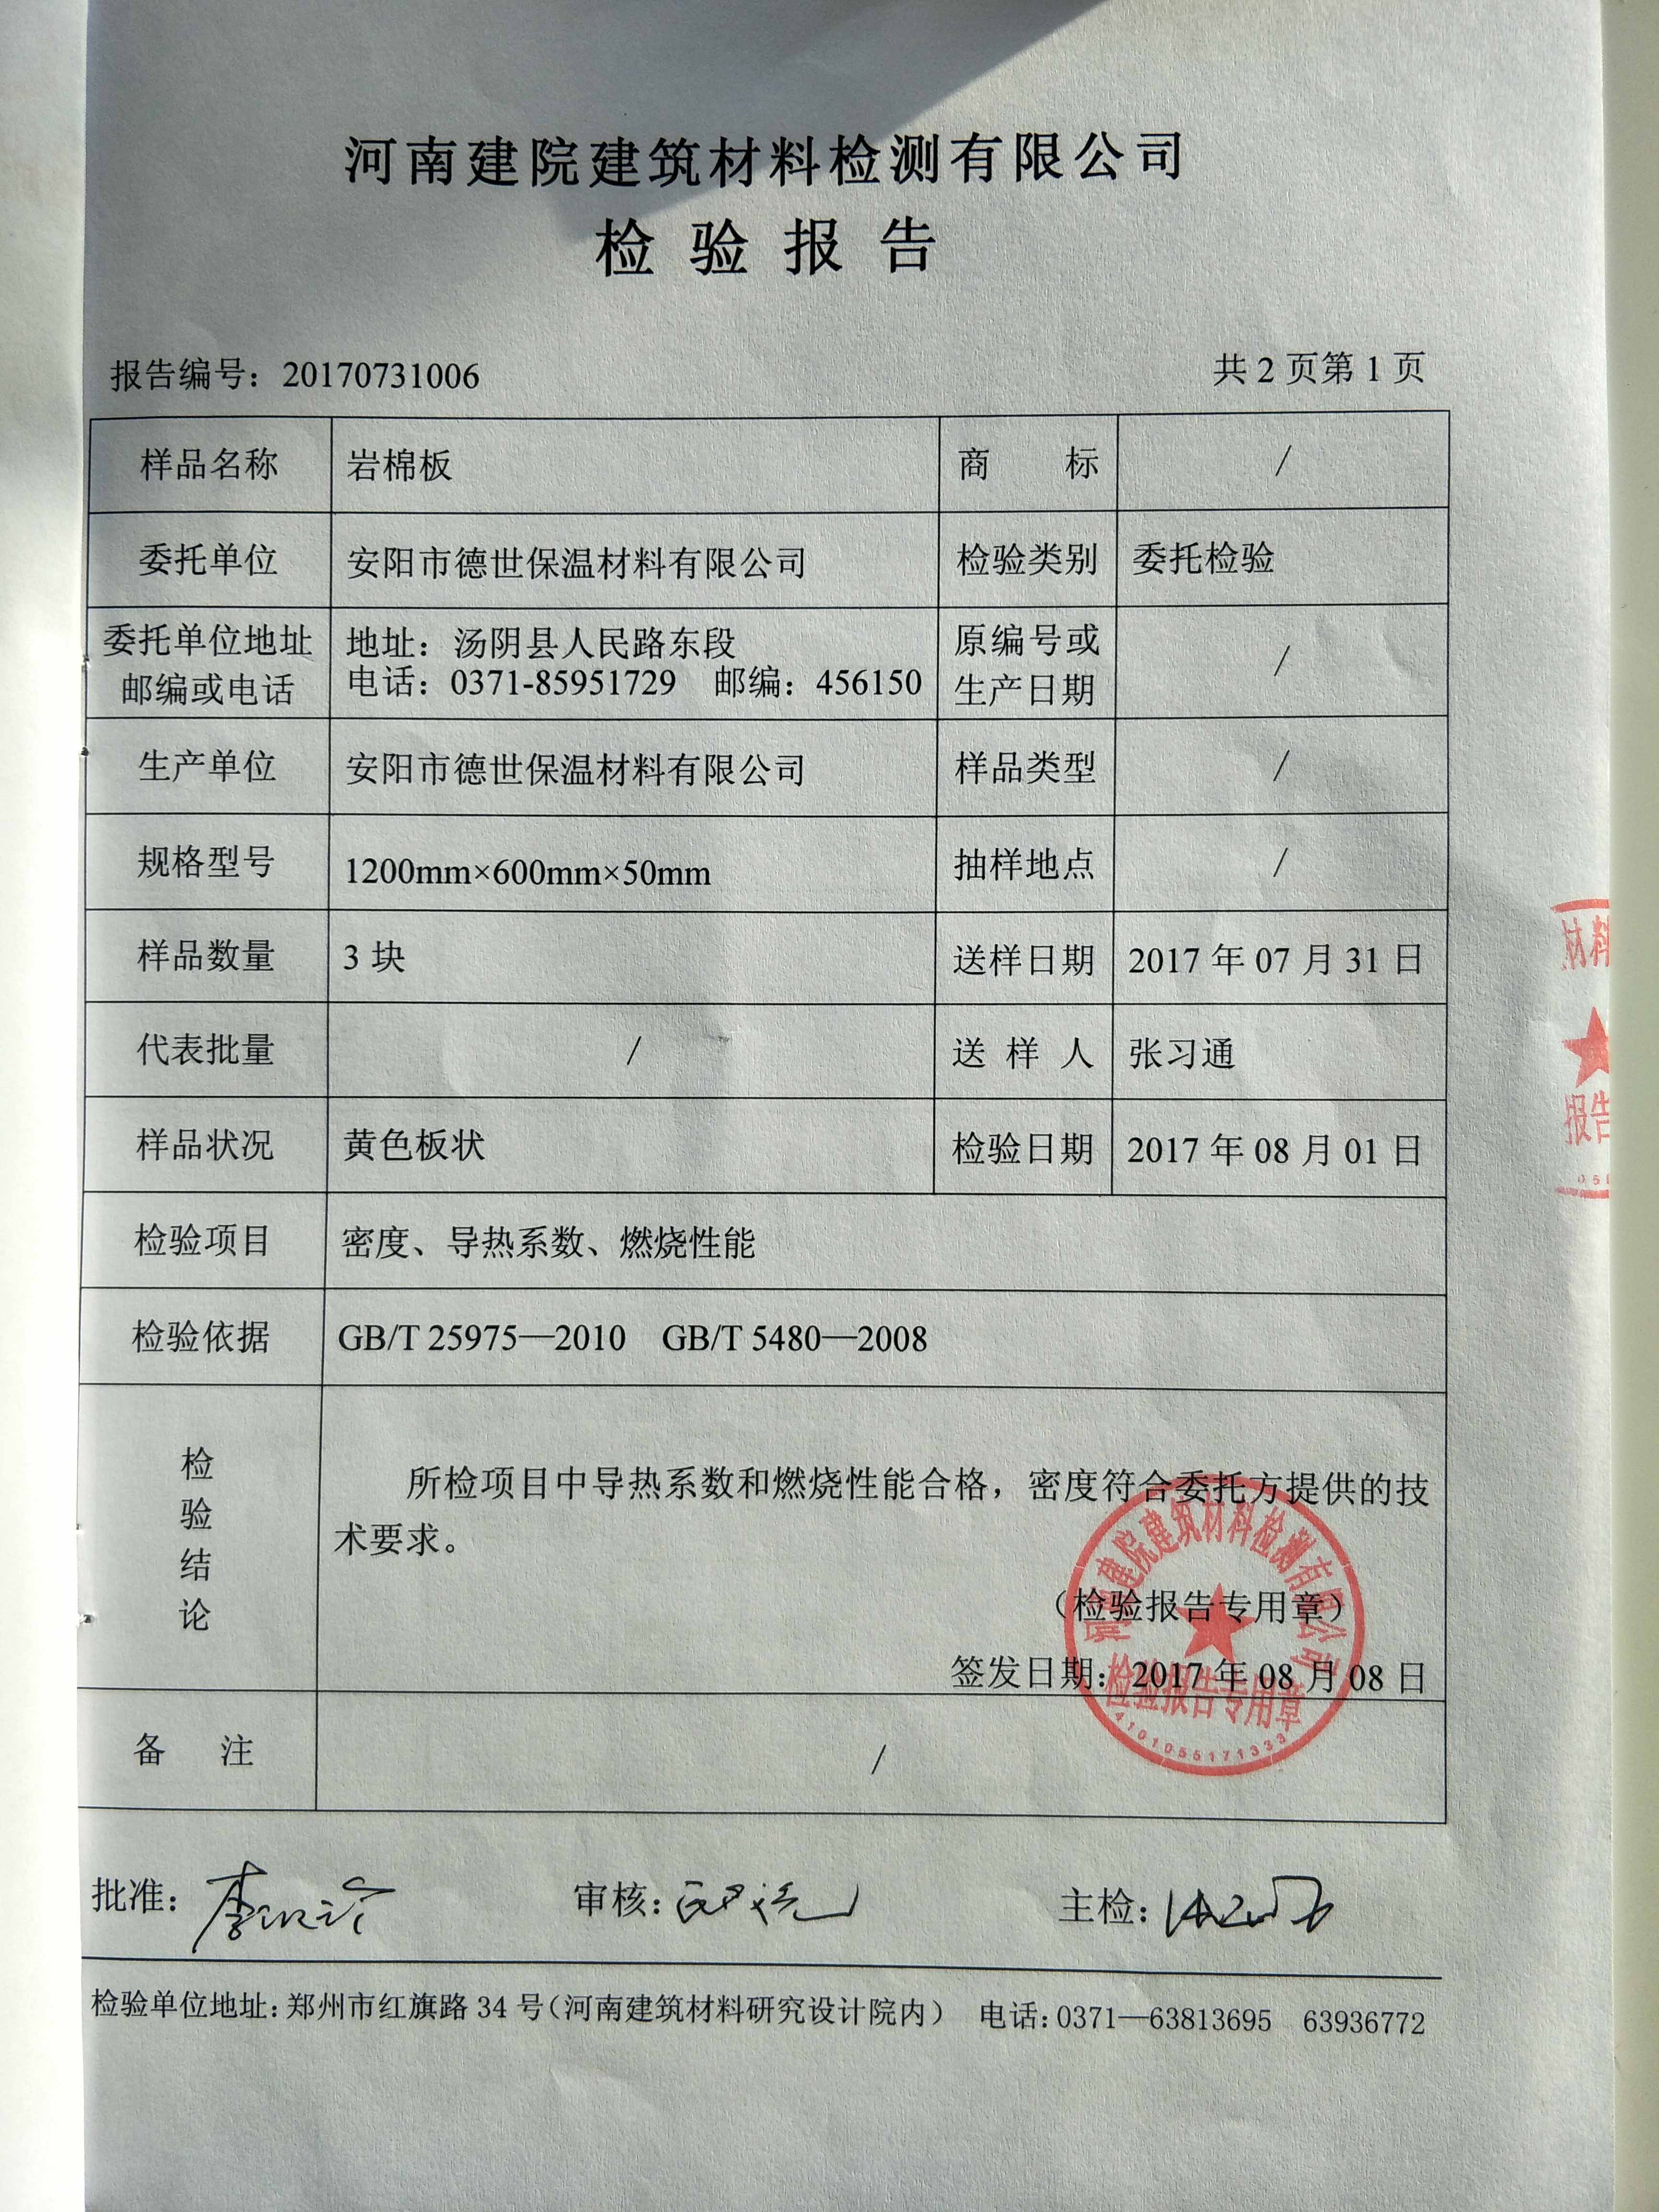 河南建院建筑材料检测有限公司
检验报告
报告编号：20170731006 共2页第1页
样品名称 岩棉板 商标 /
委托单位 安阳市德世保温材料有限公司 检验类别 委托检验
委托单位地址 地址：汤阴县人民路东段 原编号或 /
邮编或电话 电话：0371-85951729 邮编：456150 生产日期
生产单位 安阳市德世保温材料有限公司 样品类型 /
规格型号 1200mm×600mm×50mm 抽样地点 /
样品数量 3块 送样日期 2017年07月31日
代表批量 / 送样人 张习通
样品状况 黄色板状 检验日期 2017年08月01日
检验项目 密度、导热系数、燃烧性能
检验依据 GB/T 25975—2010 GB/T 5480—2008
检验结论
所检项目中导热系数和燃烧性能合格，密度符合委托方提供的技
术要求。
（检验报告专用章）
签发日期：2017年08月08日
河南建院建筑材料检测有限公司
检验报告专用章
4101055171333
备注 /
批准： 审核： 主检：
检验单位地址：郑州市红旗路34号（河南建筑材料研究设计院内） 电话：0371—63813695 63936772
材料
报告